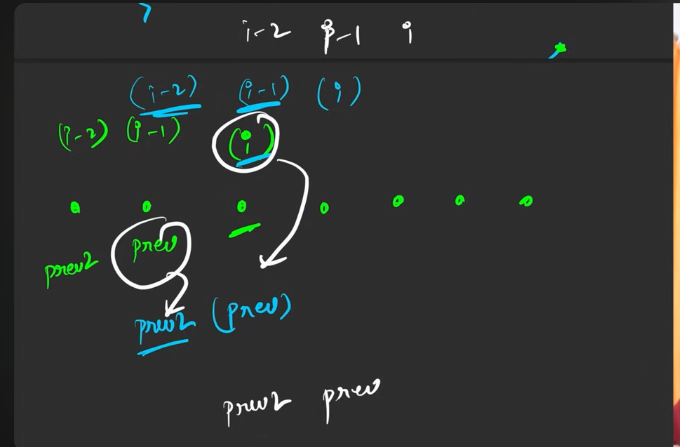 i-2 i-1 i
(i-2) (i-1) (i)
(i-2) (i-1) (i)
prev2 prev
prev2 (prev)
prev2 prev